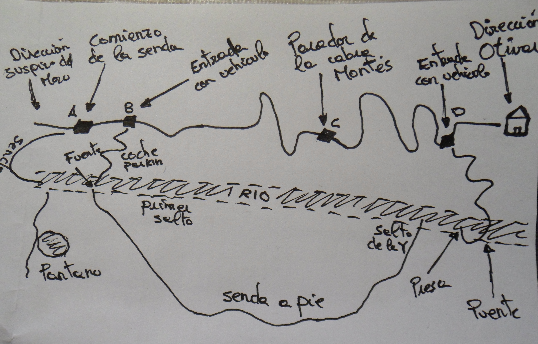 Dirección
suspiro del
Moro
Comienzo
de la senda
Entrada
con vehiculo
Parador de
la cabra
Montés
Entrada
con vehiculo
Dirección
Otivar
A
B
C
D
senda
Fuente
coche
parkin
RIO
primer
salto
salto
de la Y
Pantano
senda a pie
Presa
Puente